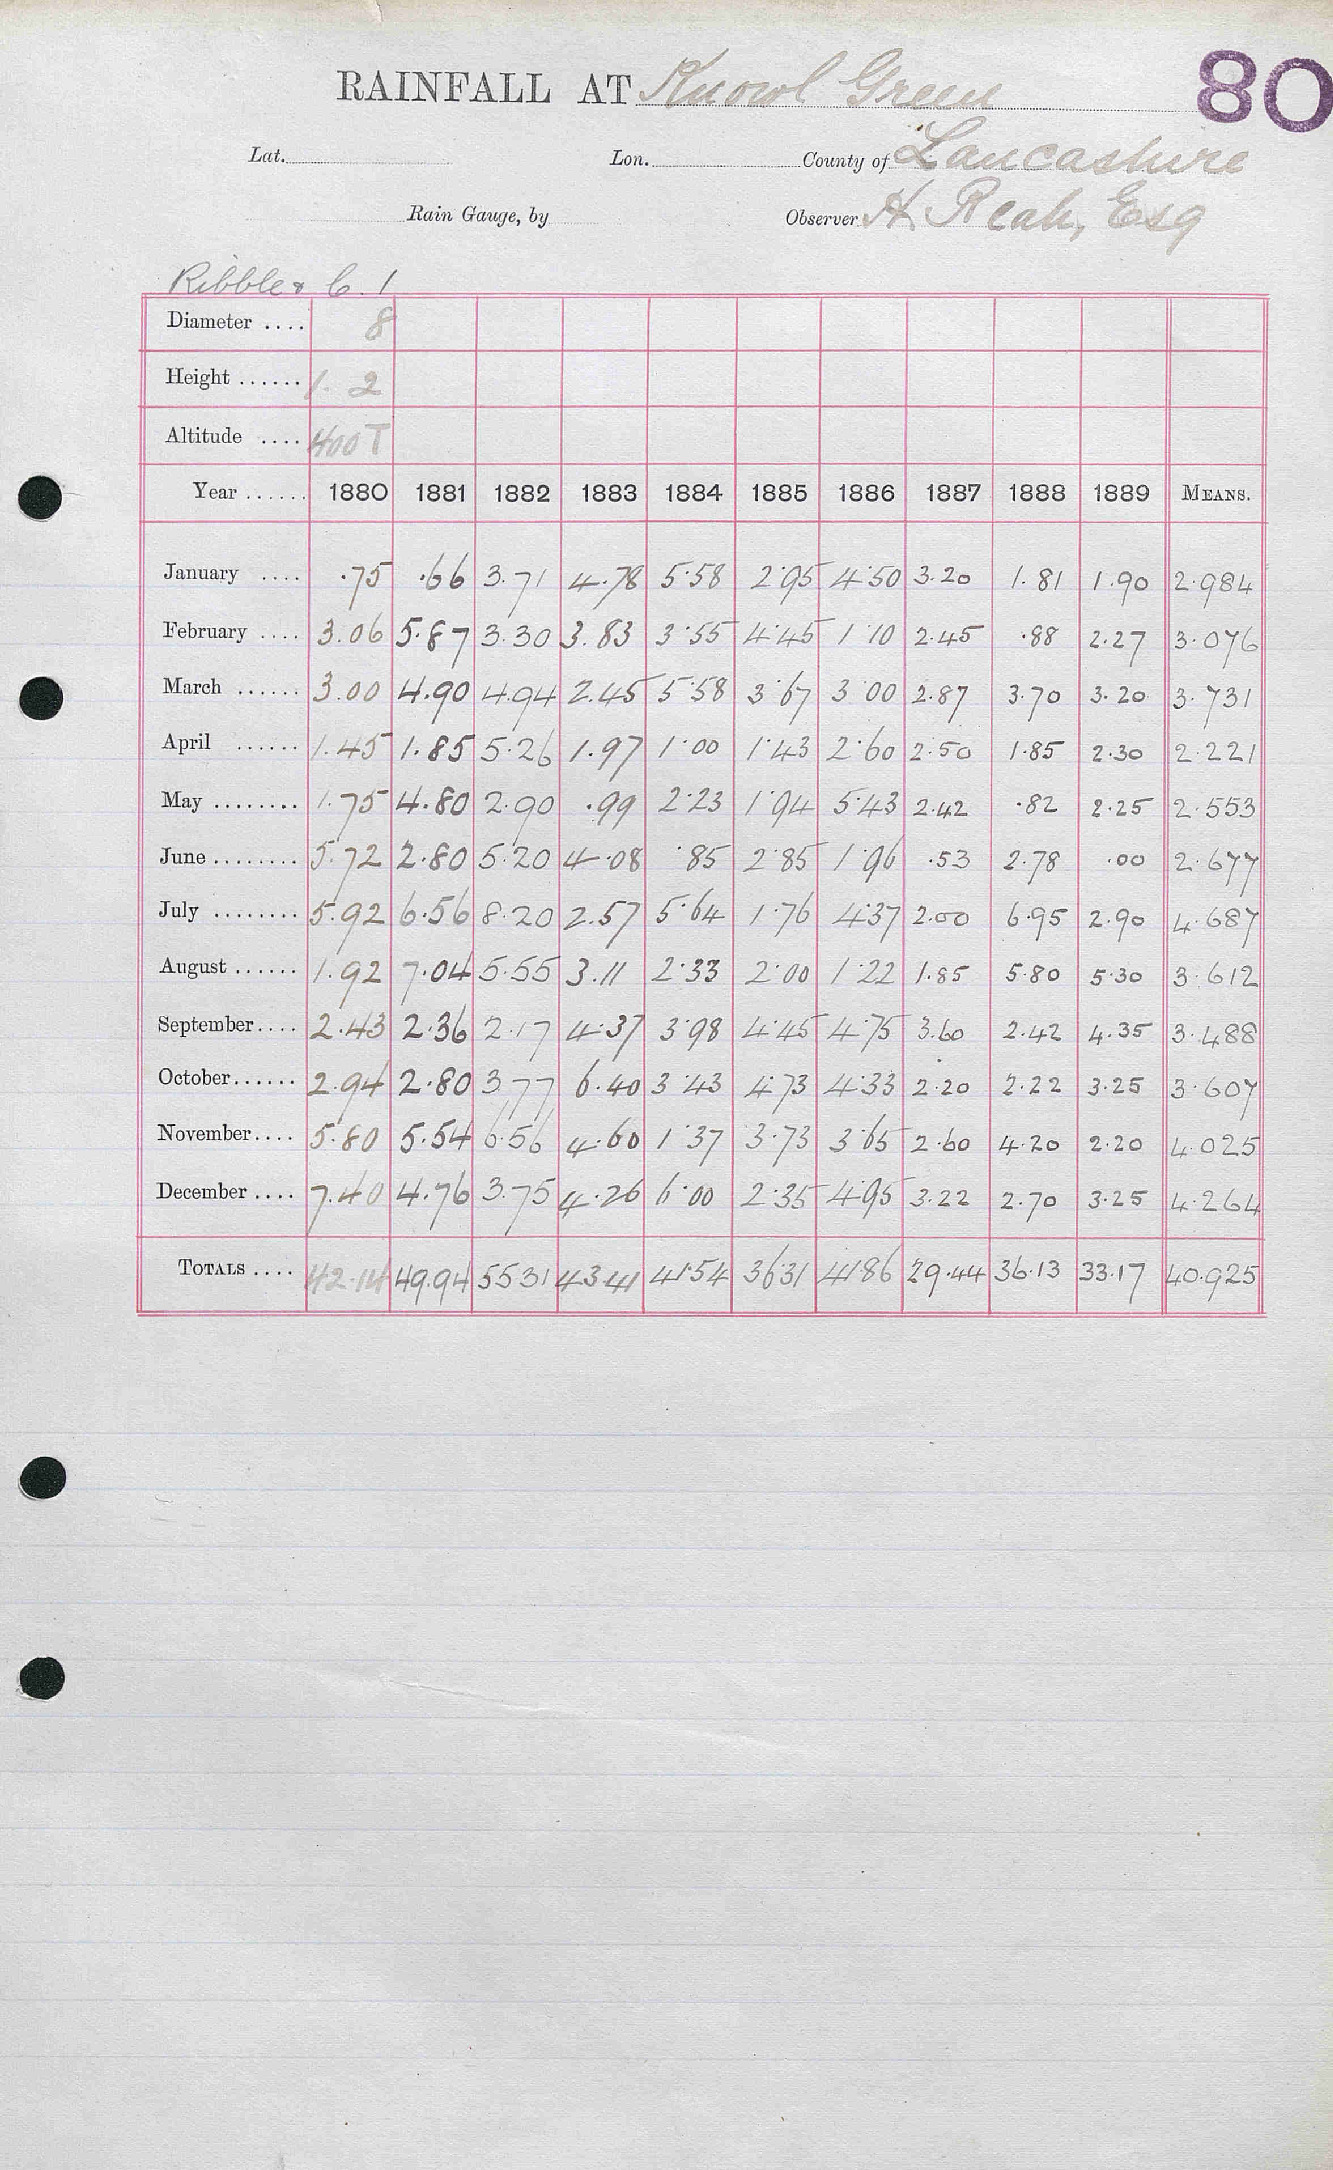 RAINFALL AT Knowl Green 80
Lat. Lon. County of Lancashire
Rain Gauge, by Observer H. Reah, Esq
Ribble & C. 1
Diameter .... 8
Height ...... 1. 2
Altitude .... 400 T
Year ...... 1880 1881 1882 1883 1884 1885 1886 1887 1888 1889 MEANS.
January .... .75 .66 3.71 4.78 5.58 2.95 4.50 3.20 1.81 1.90 2.984
February .... 3.06 5.87 3.30 3.83 3.55 4.45 1.10 2.45 .88 2.27 3.076
March ...... 3.00 4.90 4.94 2.45 5.58 3.67 3.00 2.87 3.70 3.20 3.731
April ...... 1.45 1.85 5.26 1.97 1.00 1.43 2.60 2.50 1.85 2.30 2.221
May ........ 1.75 4.80 2.90 .99 2.23 1.94 5.43 2.42 .82 2.25 2.553
June ........ 5.72 2.80 5.20 4.08 .85 2.85 1.96 .53 2.78 .00 2.677
July ........ 5.92 6.56 8.20 2.57 5.64 1.76 4.37 2.00 6.95 2.90 4.687
August ...... 1.92 7.04 5.55 3.11 2.33 2.00 1.22 1.85 5.80 5.30 3.612
September.... 2.43 2.36 2.17 4.37 3.98 4.45 4.75 3.60 2.42 4.35 3.488
October...... 2.94 2.80 3.77 6.40 3.43 4.73 4.33 2.20 2.22 3.25 3.607
November.... 5.80 5.54 6.56 4.60 1.37 3.73 3.65 2.60 4.20 2.20 4.025
December .... 7.40 4.76 3.75 4.26 6.00 2.35 4.95 3.22 2.70 3.25 4.264
TOTALS .... 42.14 49.94 55 31 43 41 41 54 36 31 41 86 29.44 36.13 33.17 40.925